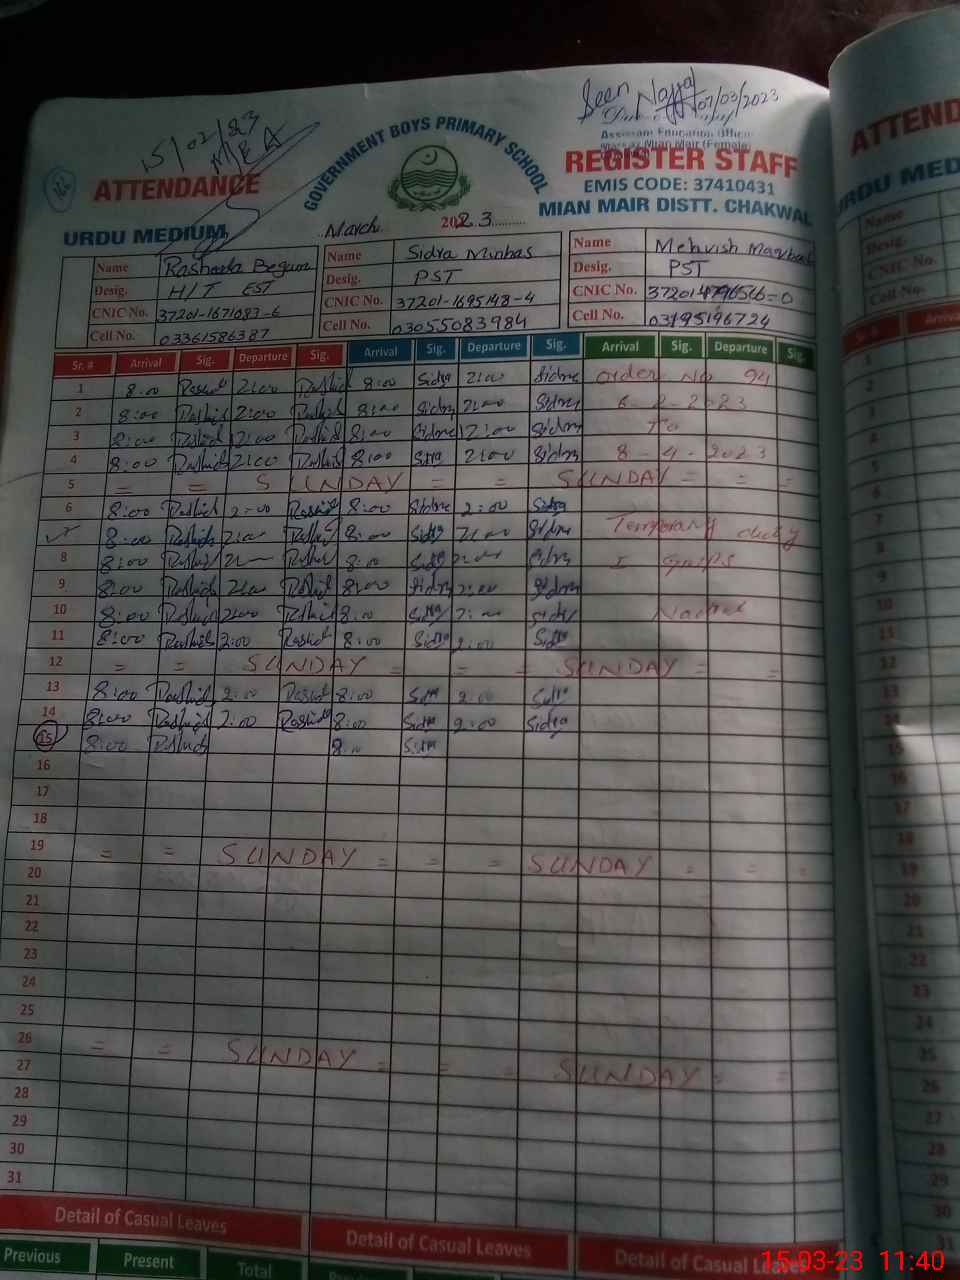 Seen
07/03/2023
Assistant Education Officer
Markaz Mian Mair (Female)
15/02/23
MEA
GOVERNMENT BOYS PRIMARY SCHOOL
ATTENDANCE
REGISTER STAFF
EMIS CODE: 37410431
URDU MEDIUM
March 2023
MIAN MAIR DISTT. CHAKWAL
Name Rasharda Begum Name Sidra Minhas Name Mehvish
Desig. H/T EST Desig. PST Desig. PST
CNIC No. 37201-1671083-6 CNIC No. 37201-1695148-4 CNIC No.
Cell No. 03361586387 Cell No. 03055083984 Cell No. 03195196724
Sr. # Arrival Sig. Departure Sig. Arrival Sig. Departure Sig. Arrival Sig. Departure Sig.
1 8:00 Rashid 2:00 Rashid 8:00 Sidra 2:00 Sidra Order No 94
2 8:00 Rashid 2:00 Rashid 8:00 Sidra 2:00 Sidra 6-2-2023
3 8:00 Rashid 2:00 Rashid 8:00 Sidra 2:00 Sidra To
4 8:00 Rashid 2:00 Rashid 8:00 Sidra 2:00 Sidra 8-4-2023
5 = = SUNDAY = = SUNDAY = = =
6 8:00 Rashid 2:00 Rashid 8:00 Sidra 2:00 Sidra
8:00 Rashid 2:00 Rashid 8:00 Sidra 2:00 Sidra Temporary duty
8 8:00 Rashid 2:00 Rashid 8:00 Sidra 2:00 Sidra
9 8:00 Rashid 2:00 Rashid 8:00 Sidra 2:00 Sidra
10 8:00 Rashid 2:00 Rashid 8:00 Sidra 2:00 Sidra
11 8:00 Rashid 2:00 Rashid 8:00 Sidra 2:00 Sidra
12 = = SUNDAY = = = SUNDAY = =
13 8:00 Rashid 2:00 Rashid 8:00 Sidra 2:00 Sidra
14 8:00 Rashid 2:00 Rashid 8:00 Sidra 2:00 Sidra
15 8:00 Rashid 8:00 Sidra
16
17
18
19 = = SUNDAY = = = SUNDAY = = =
20
21
22
23
24
25
26 = = SUNDAY = = = SUNDAY = =
27
28
29
30
31
Detail of Casual Leaves Detail of Casual Leaves Detail of Casual Leaves
Previous Present Total
ATTEND
URDU MED
Name
Desig.
CNIC No.
Cell No.
15-03-23 11:40